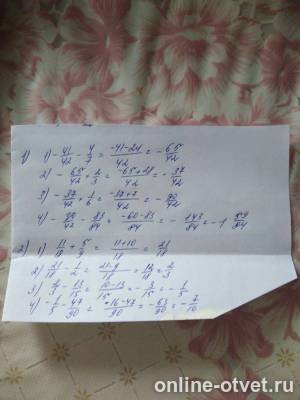 1) 1) -41/42 - 4/7 = -41-24/42 = -65/42
2) -65/42 + 2/3 = -65+28/42 = -37/42
3) -37/42 + 1/6 = -37+7/42 = -30/42
= -60-83/84 = -143/84 = -1 59/84
2) 1) 11/18 + 5/9 = 11+10/18 = 21/18
2) 21/18 - 1/2 = 21-9/18 = 12/18 = 2/3
3) 2/3 - 13/15 = 10-13/15 = -3/15 = -1/5
4) -1/5 - 47/90 = -63/90 = -7/10
online-otvet.ru